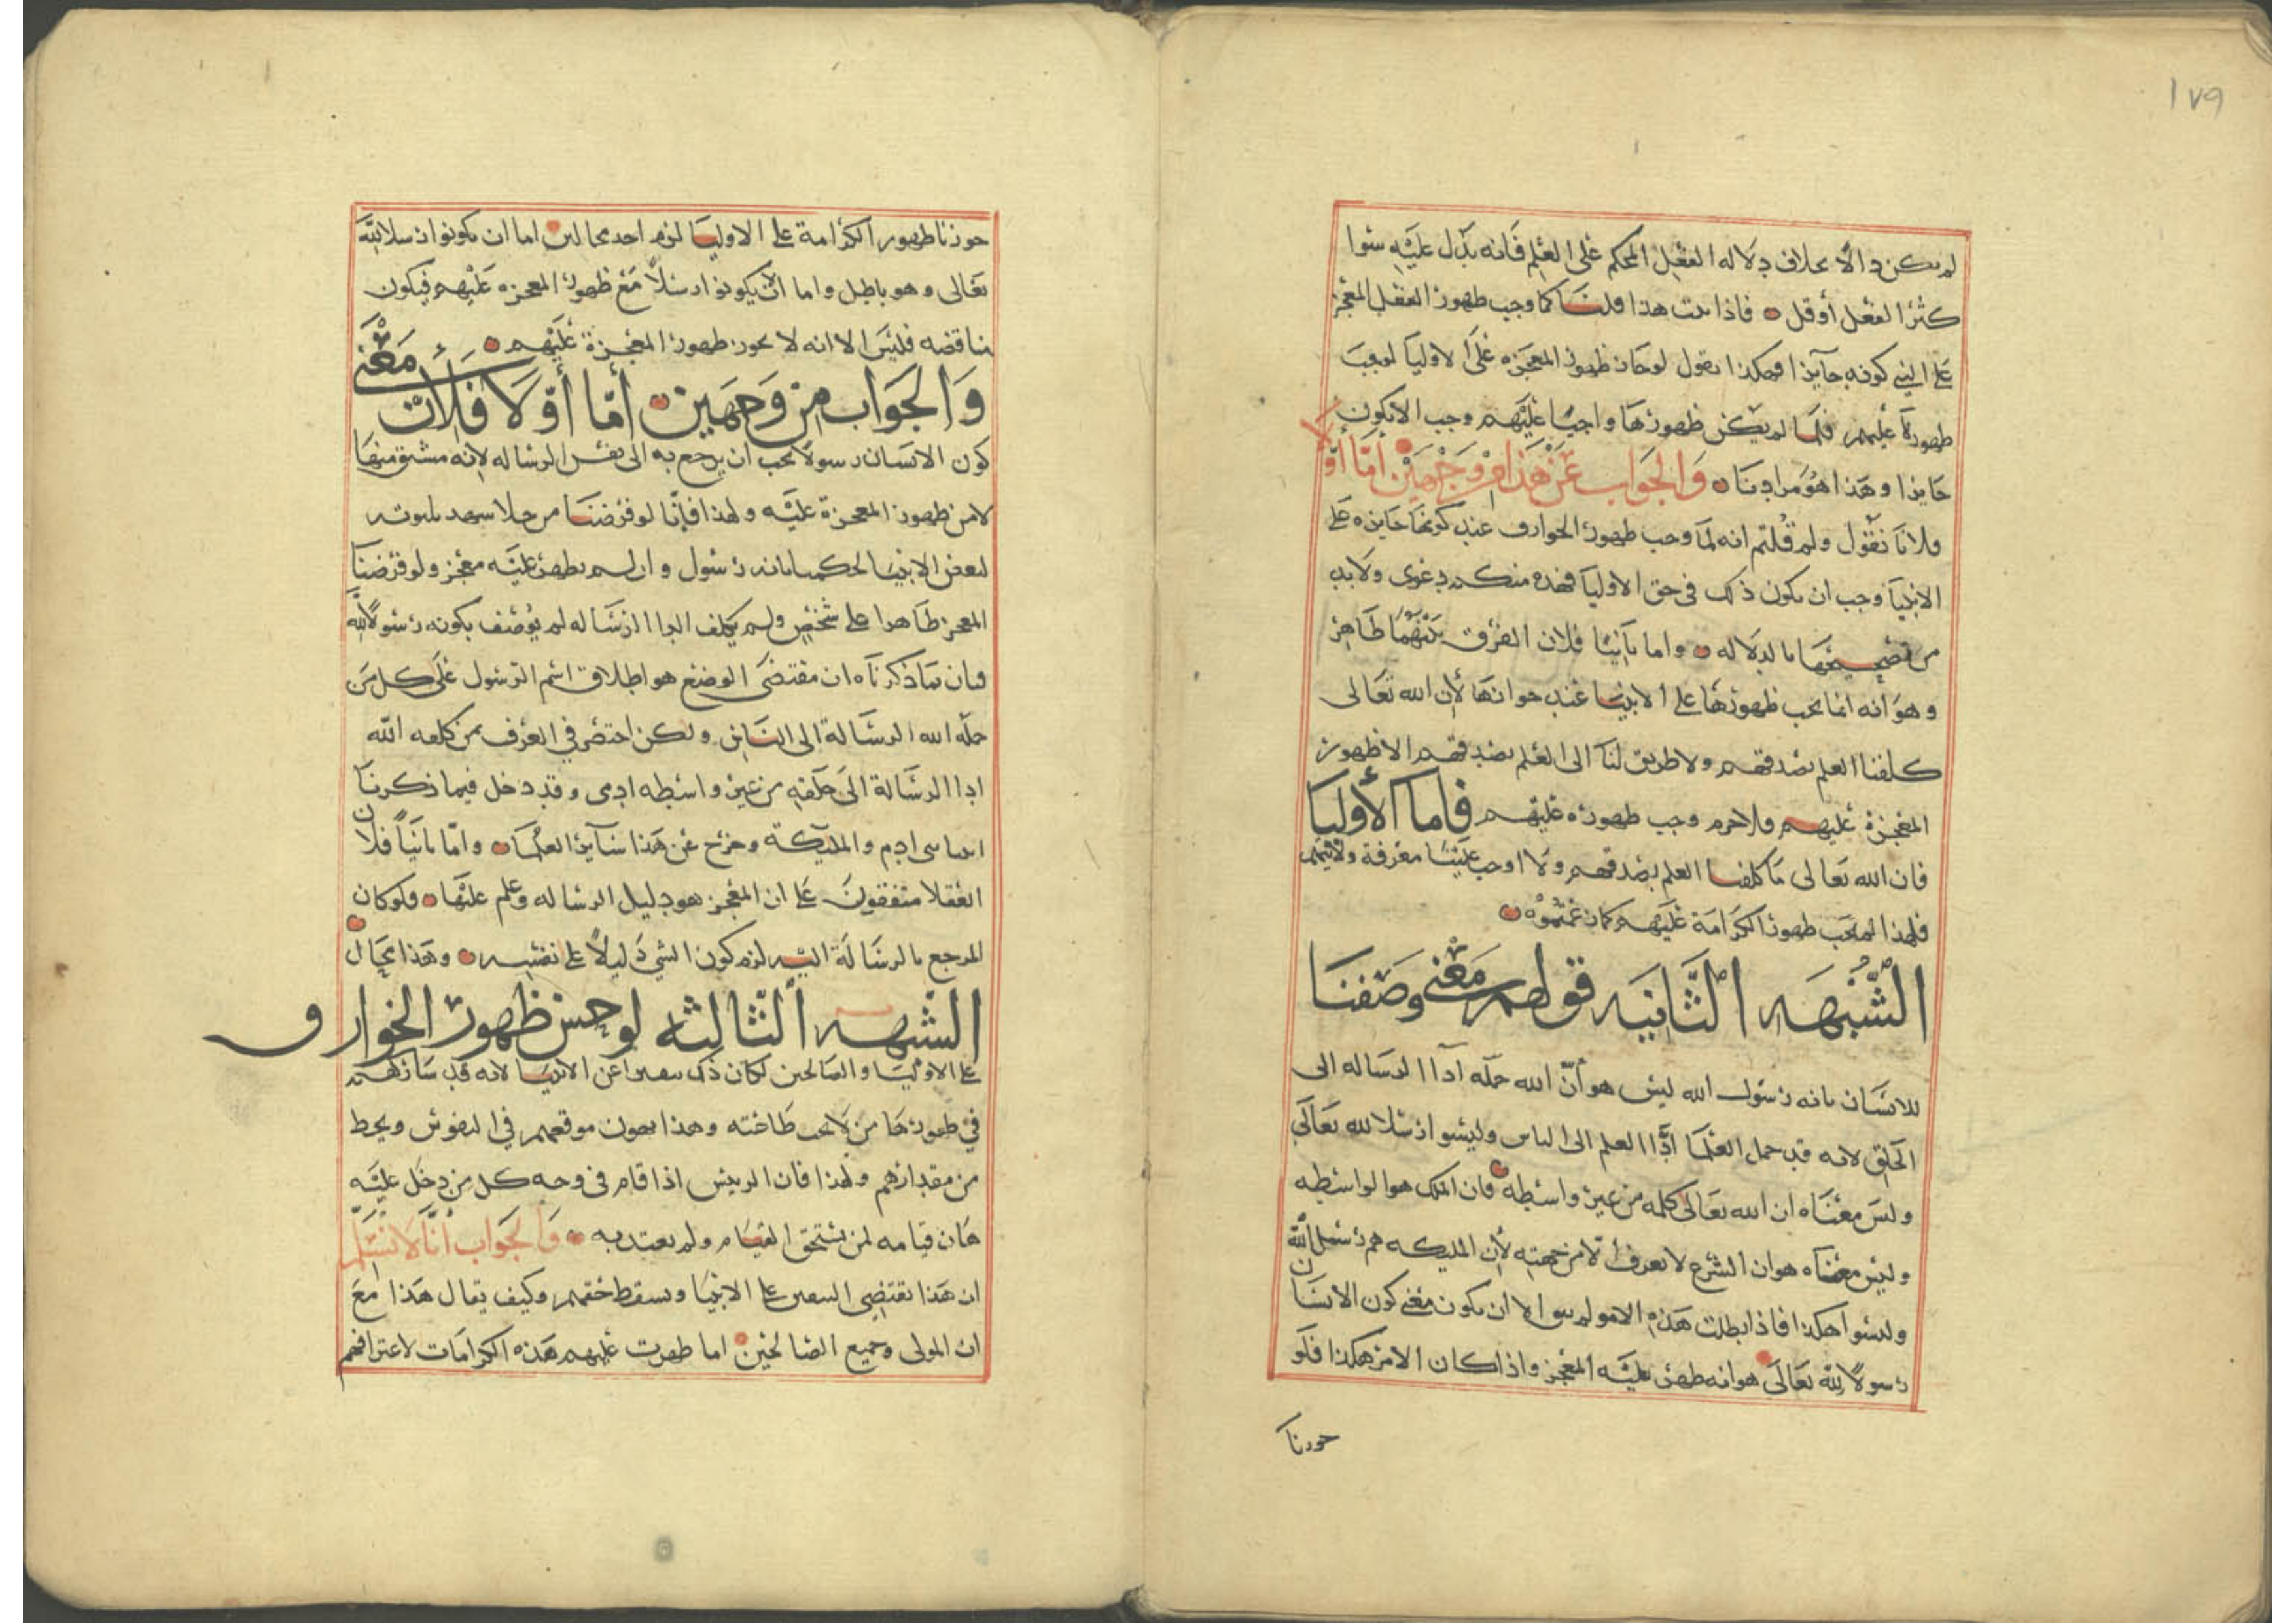 ١٧٩
لم يكن دالا بخلاف دلاله الفعل المحكم على العلم فانه يدل عليه سوا
كثر الفعل أو قل فاذا ثبت هذا قلنا كما وجب ظهور الفعل المعجز
على النبي كونه جايزا فهكذا نقول لو جاز ظهور المعجزه على الاوليا لوجب
ظهوره عليهم فلما لم يكن ظهورها واجبا عليهم وجب الا يكون
جايزا وهذا هو مرادنا والجواب عن هذا من وجهين أما أولا
فلانا نقول ولم قلتم انه لما وجب ظهور الخوارق عند كونها جايزه على
الانبيا وجب ان يكون ذلك في حق الاوليا فهذه منكم دعوى ولا بد
من تصحيحها بالدلاله واما ثانيا فلان الفرق بينهما ظاهر
وهو أنه انما يجب ظهورها على الانبيا عند جوازها لأن الله تعالى
كلفنا العلم بصدقهم ولا طريق لنا الى العلم بصدقهم الا ظهور
المعجزة عليهم فلا جرم وجب ظهوره عليهم فاما الأوليا
فان الله تعالى ما كلفنا العلم بصدقهم ولا اوجب علينا معرفة ولايتهم
فلهذا لم يجب ظهور الكرامة عليهم كما زعمتموه
الشبهه الثانيه قولهم معنى وصفنا
للانسان بانه رسول الله ليس هو أن الله حمله أدا الرساله الى
الخلق لانه قد حمل العلما أدا العلم الى الناس وليسوا رسلا لله تعالى
وليس معناه ان الله تعالى كلمه من غير واسطه فان الملك هو الواسطه
وليس معناه هو ان الشرع لا يعرف الا من جهته لأن المليكه هم رسل الله
وليسوا هكذا فاذا بطلت هذه الامور لم يبق الا ان يكون معنى كون الانسان
رسولا لله تعالى هو انه ظهر عليه المعجز واذا كان الامر هكذا فلو
جوزنا
جوزنا ظهور الكرامة على الاوليا لزم احد محالين اما ان يكونوا رسلا لله
تعالى وهو باطل واما الا يكونوا رسلا مع ظهور المعجزه عليهم فيكون
مناقضه فليس الا انه لا يجوز ظهور المعجزة عليهم
والجواب من وجهين أما أولا فلأن معنى
كون الانسان رسولا يجب ان يرجع به الى نفس الرساله لانه مشتق منها
لا من ظهور المعجزة عليه ولهذا فإنا لو فرضنا رجلا
لبعض الانبيا لحكمنا بانه رسول وان لم يظهر عليه معجز ولو فرضنا
المعجز ظاهرا على شخص ولم يكلف ادا الرساله لم يوصف بكونه رسولا لله
فبان بما ذكرناه ان مقتضى الوضع هو اطلاق اسم الرسول على كل من
حمله الله الرسالة الى الناس ولكن اختص في العرف بمن كلفه الله
ادا الرسالة الى خلقه من غير واسطه ادمى وقد دخل فيما ذكرنا
انبيا بني ادم والمليكة وخرج عن هذا ساير العلما واما ثانيا فلان
العقلا متفقون على ان المعجز هو دليل الرساله وعلم عليها فلو كان
المرجع بالرسالة اليه لزم كون الشي دليلا على نفسه وهذا محال
الشبهه الثالثه لو حسن ظهور الخوارق
على الاوليا والصالحين لكان ذلك تنفيرا عن الانبيا لانه قد شاركهم
في ظهورها من لا يجب طاعته وهذا يهون موقعهم في النفوس ويحط
من مقدارهم ولهذا فان الرييس اذا قام في وجه كل من دخل عليه
هان قيامه لمن يستحق القيام ولم يعتد به والجواب أنا لا نسلم
ان هذا يقتضي التنفير على الانبيا ويسقط حقهم وكيف يقال هذا مع
ان المولى وجميع الصالحين انما ظهرت عليهم هذه الكرامات لاعترافهم